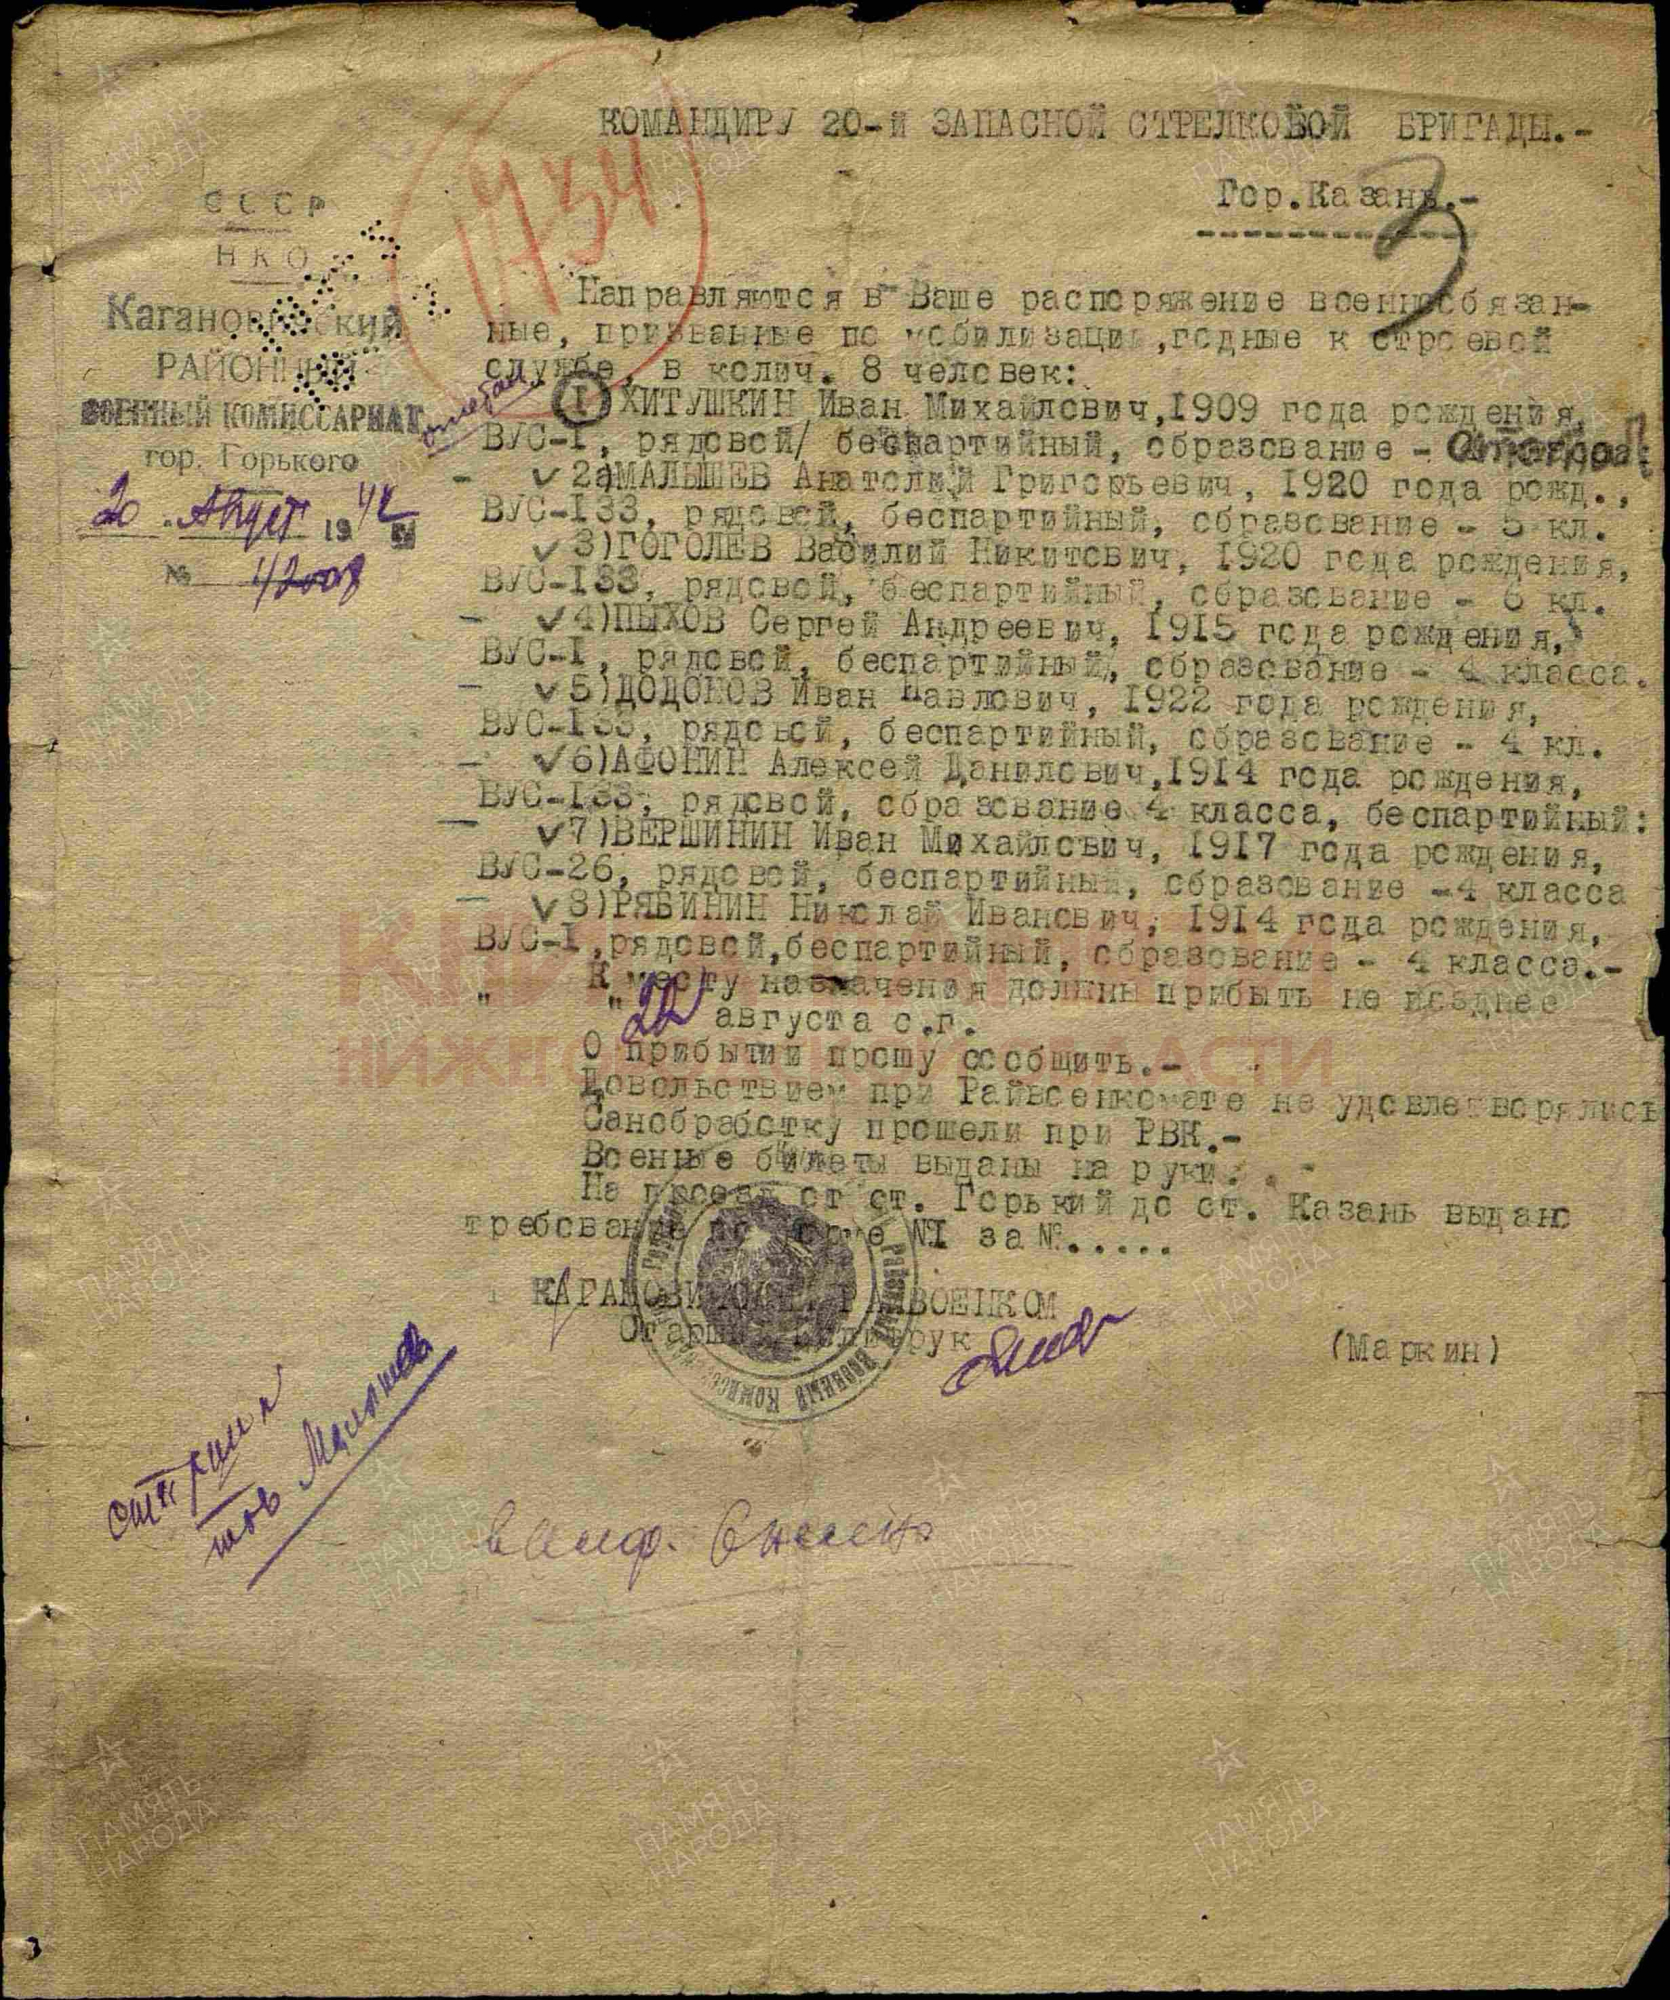 КОМАНДИРУ 20-й ЗАПАСНОЙ СТРЕЛКОВОЙ БРИГАДЫ.-
Гор.Казань.-
1734
3
СССР
НКО
Кагановический
РАЙОННЫЙ
ВОЕННЫЙ КОМИССАРИАТ
гор. Горького
20 Август 1942
№
Направляются в Ваше распоряжение военнообязан-
ные, призванные по мобилизации,годные к строевой
службе, в колич. 8 человек:
1) ХИТУШКИН Иван Михайлович,1909 года рождения,
ВУС-I, рядовой/ беспартийный, образование -
2)МАЛЫШЕВ Анатолий Григорьевич, 1920 года рожд.,
ВУС-I33, рядовой, беспартийный, образование - 5 кл.
3)ГОГОЛЕВ Василий Никитович, 1920 года рождения,
ВУС-I33, рядовой, беспартийный, образование - 6 кл.
4)ПЫХОВ Сергей Андреевич, 1915 года рождения,
ВУС-I, рядовой, беспартийный, образование - 4 класса.
5)ДОДОНОВ Иван Павлович, 1922 года рождения,
ВУС-I33, рядовой, беспартийный, образование - 4 кл.
6)АФОНИН Алексей Данилович,1914 года рождения,
ВУС-I33, рядовой, образование 4 класса, беспартийный:
7)ВЕРШИНИН Иван Михайлович, 1917 года рождения,
ВУС-26, рядовой, беспартийный, образование -4 класса
8)РЯБИНИН Николай Иванович, 1914 года рождения,
ВУС-I,рядовой,беспартийный, образование - 4 класса.-
К месту назначения должны прибыть не позднее
" 22 " августа с.г.
О прибытии прошу сообщить.-
Довольствием при Райвоенкомате не удовлетворялись
Санобработку прошли при РВК.-
Военные билеты выданы на руки.
На проезд от ст. Горький до ст. Казань выдано
требование по форме №I за №.....
КАГАНОВИЧСКИЙ РАЙВОЕНКОМ
Старший политрук
(Маркин)
РАЙОННЫЙ ВОЕННЫЙ КОМИС
тов Малышев
КНИГА ПАМЯТИ
НИЖЕГОРОДСКОЙ ОБЛАСТИ
ПАМЯТЬ
НАРОДА